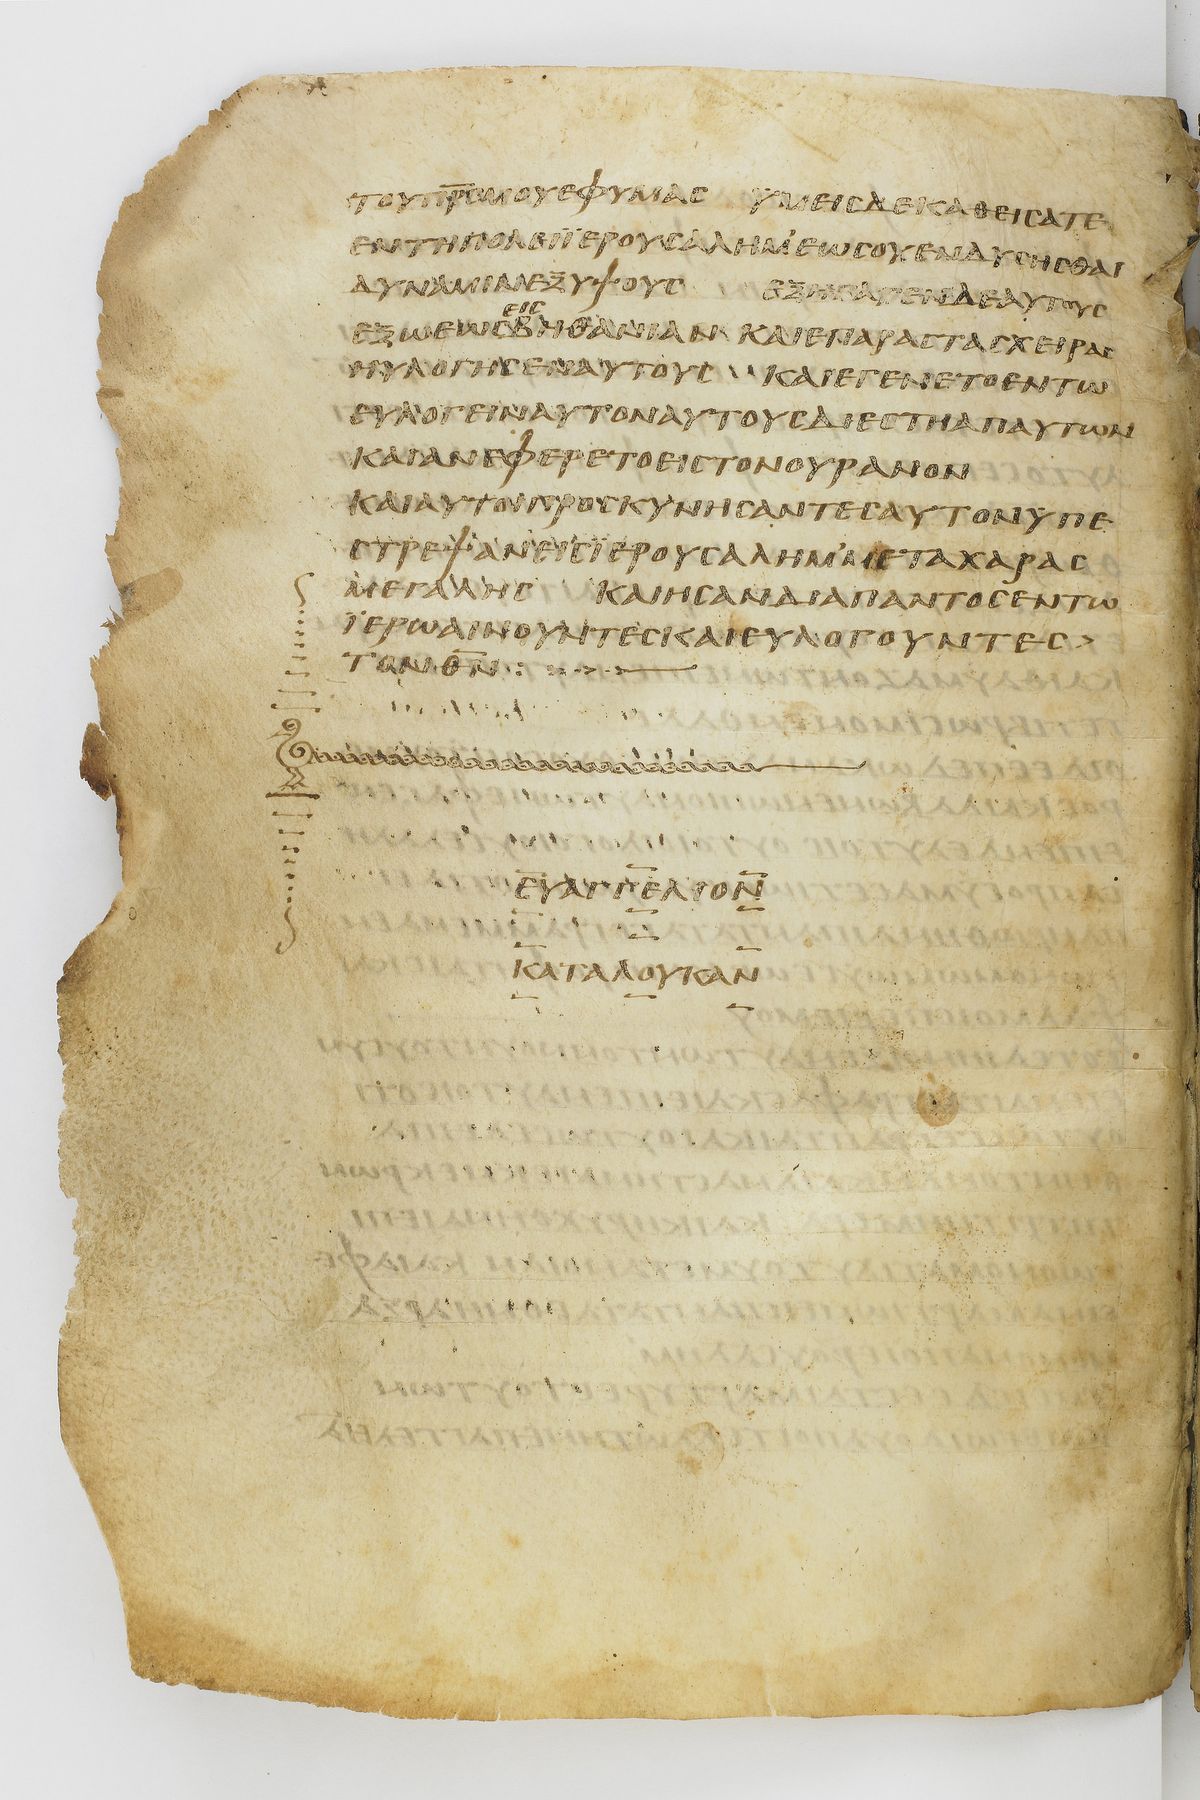 ΤΟΥΠΡ̅Ϲ̅ΜΟΥΕΦΥΜΑϹ ΥΜΕΙϹΔΕΚΑΘΕΙϹΑΤΕ
ΕΝΤΗΠΟΛΕΙΪΕΡΟΥϹΑΛΗΜ’ΕΩϹΟΥΕΝΔΥϹΗϹΘΑΙ
ΔΥΝΑΜΙΝΕΞΥΨΟΥϹ ΕΞΗΓΑΓΕΝΔΕΑΥΤΟΥϹ
ΕΞΩΕΩϹΕΙϹΒΗΘΑΝΙΑΝ ΚΑΙΕΠΑΡΑϹΤΑϹΧΕΙΡΑϹ
ΗΥΛΟΓΗϹΕΝΑΥΤΟΥϹ ΚΑΙΕΓΕΝΕΤΟΕΝΤΩ
ΕΥΛΟΓΕΙΝΑΥΤΟΝΑΥΤΟΥϹΔΙΕϹΤΗΑΠΑΥΤΩΝ
ΚΑΙΑΝΕΦΕΡΕΤΟΕΙϹΤΟΝΟΥΡΑΝΟΝ
ΚΑΙΑΥΤΟΙΠΡΟϹΚΥΝΗϹΑΝΤΕϹΑΥΤΟΝΥΠΕ
ϹΤΡΕΨΑΝΕΙϹΪΕΡΟΥϹΑΛΗΜ’ΜΕΤΑΧΑΡΑϹ
ΜΕΓΑΛΗϹ ΚΑΙΗϹΑΝΔΙΑΠΑΝΤΟϹΕΝΤΩ
ΪΕΡΩΑΙΝΟΥΝΤΕϹΚΑΙΕΥΛΟΓΟΥΝΤΕϹ>
ΤΟΝΘ̅Ν̅:
ΕΥΑΓΓΕΛΙΟΝ
ΚΑΤΑΛΟΥΚΑΝ